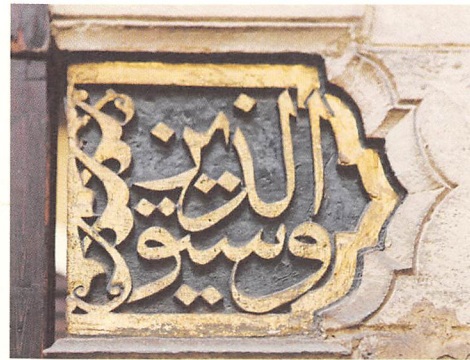 وسيق الذين